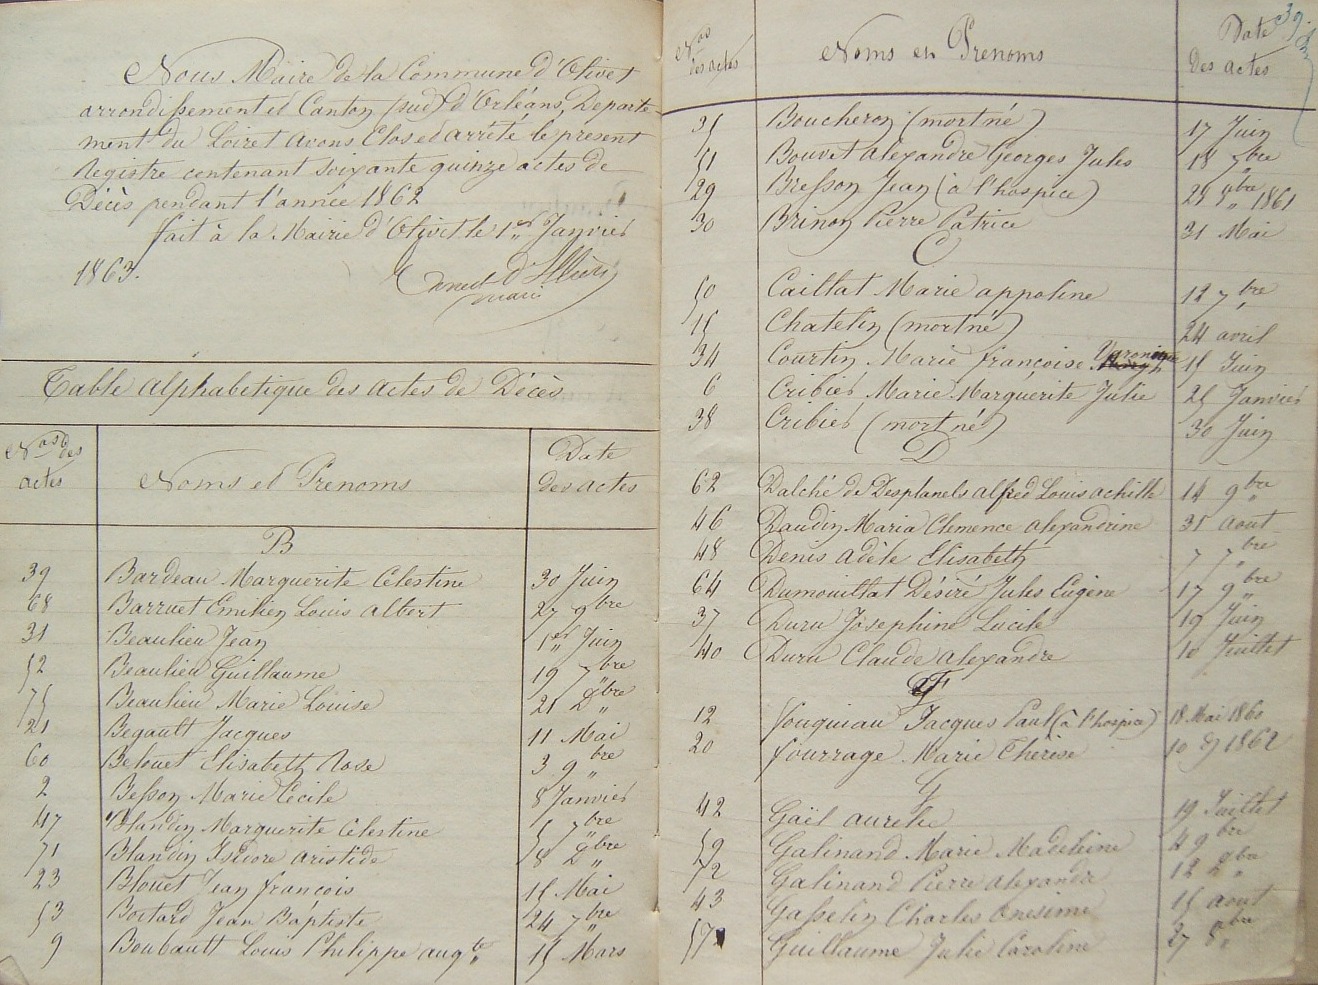 Nous Maire de la Commune d'Olivet
arrondissement et Canton (sud) d'Orléans, Departe
ment du Loiret avons Clos et arrêté le présent
Registre contenant soixante quinze actes de
Décès pendant l'année 1862
fait à la Mairie d'Olivet le 1er Janvier
1863.
maire
Table alphabetique des actes de Décès
Nos des actes
Noms et Prenoms
Date des actes
B
39 Bardeau Marguerite Celestine 30 Juin
68 Barruet Emilien Louis Albert 27 9bre
31 Beaulieu Jean 1er Juin
52 Beaulieu Guillaume 19 7bre
75 Beaulieu Marie Louise 21 Xbre
21 Begault Jacques 11 Mai
60 Belouet Elisabeth Rose 3 9bre
2 Besson Marie Cecile 8 Janvier
47 Blandin Marguerite Celestine 5 7bre
71 Blandin Isidore aristide 8 Xbre
23 Blouet Jean françois 15 Mai
53 Boitard Jean Baptiste 24 7bre
9 Boubault Louis Philippe augte 15 Mars
39
Nos des actes
Noms et Prenoms
Date des actes
35 Boucheron (mort né) 17 Juin
51 Bouvet Alexandre Georges Jules 18 7bre
29 Bresson Jean (à l'hospice) 1861
30 Brinon Pierre Patrice 31 Mai
C
50 Caillat Marie appoline 12 7bre
15 Chatelin (mort né) 24 avril
34 Courtin Marie françoise Veronique 15 Juin
6 Cribier Marie Marguerite Julie 25 Janvier
38 Cribier (mort né) 30 Juin
D
62 Dalché de Desplanels alfred Louis achille 14 9bre
46 Daudin Maria Clemence alexandrine 31 aout
48 Denis adèle Elisabeth 7 7bre
64 Dumouillat Désiré Jules Eugène 17 9bre
37 Duru Joséphine Lucile 19 Juin
40 Duru Claude alexandre 10 Juillet
F
12 fouquiau Jacques Paul (à l'hospice) 18 Mai 1860
20 fourrage Marie Thérèse 10 1862
G
42 Gaël aurelie 19 Juillet
59 Galinand Marie Madeleine 9bre
72 Galinand Pierre alexandre 12 Xbre
43 Gasselin Charles onesime 15 aout
57 Guillaume Julie Caroline 27 8bre